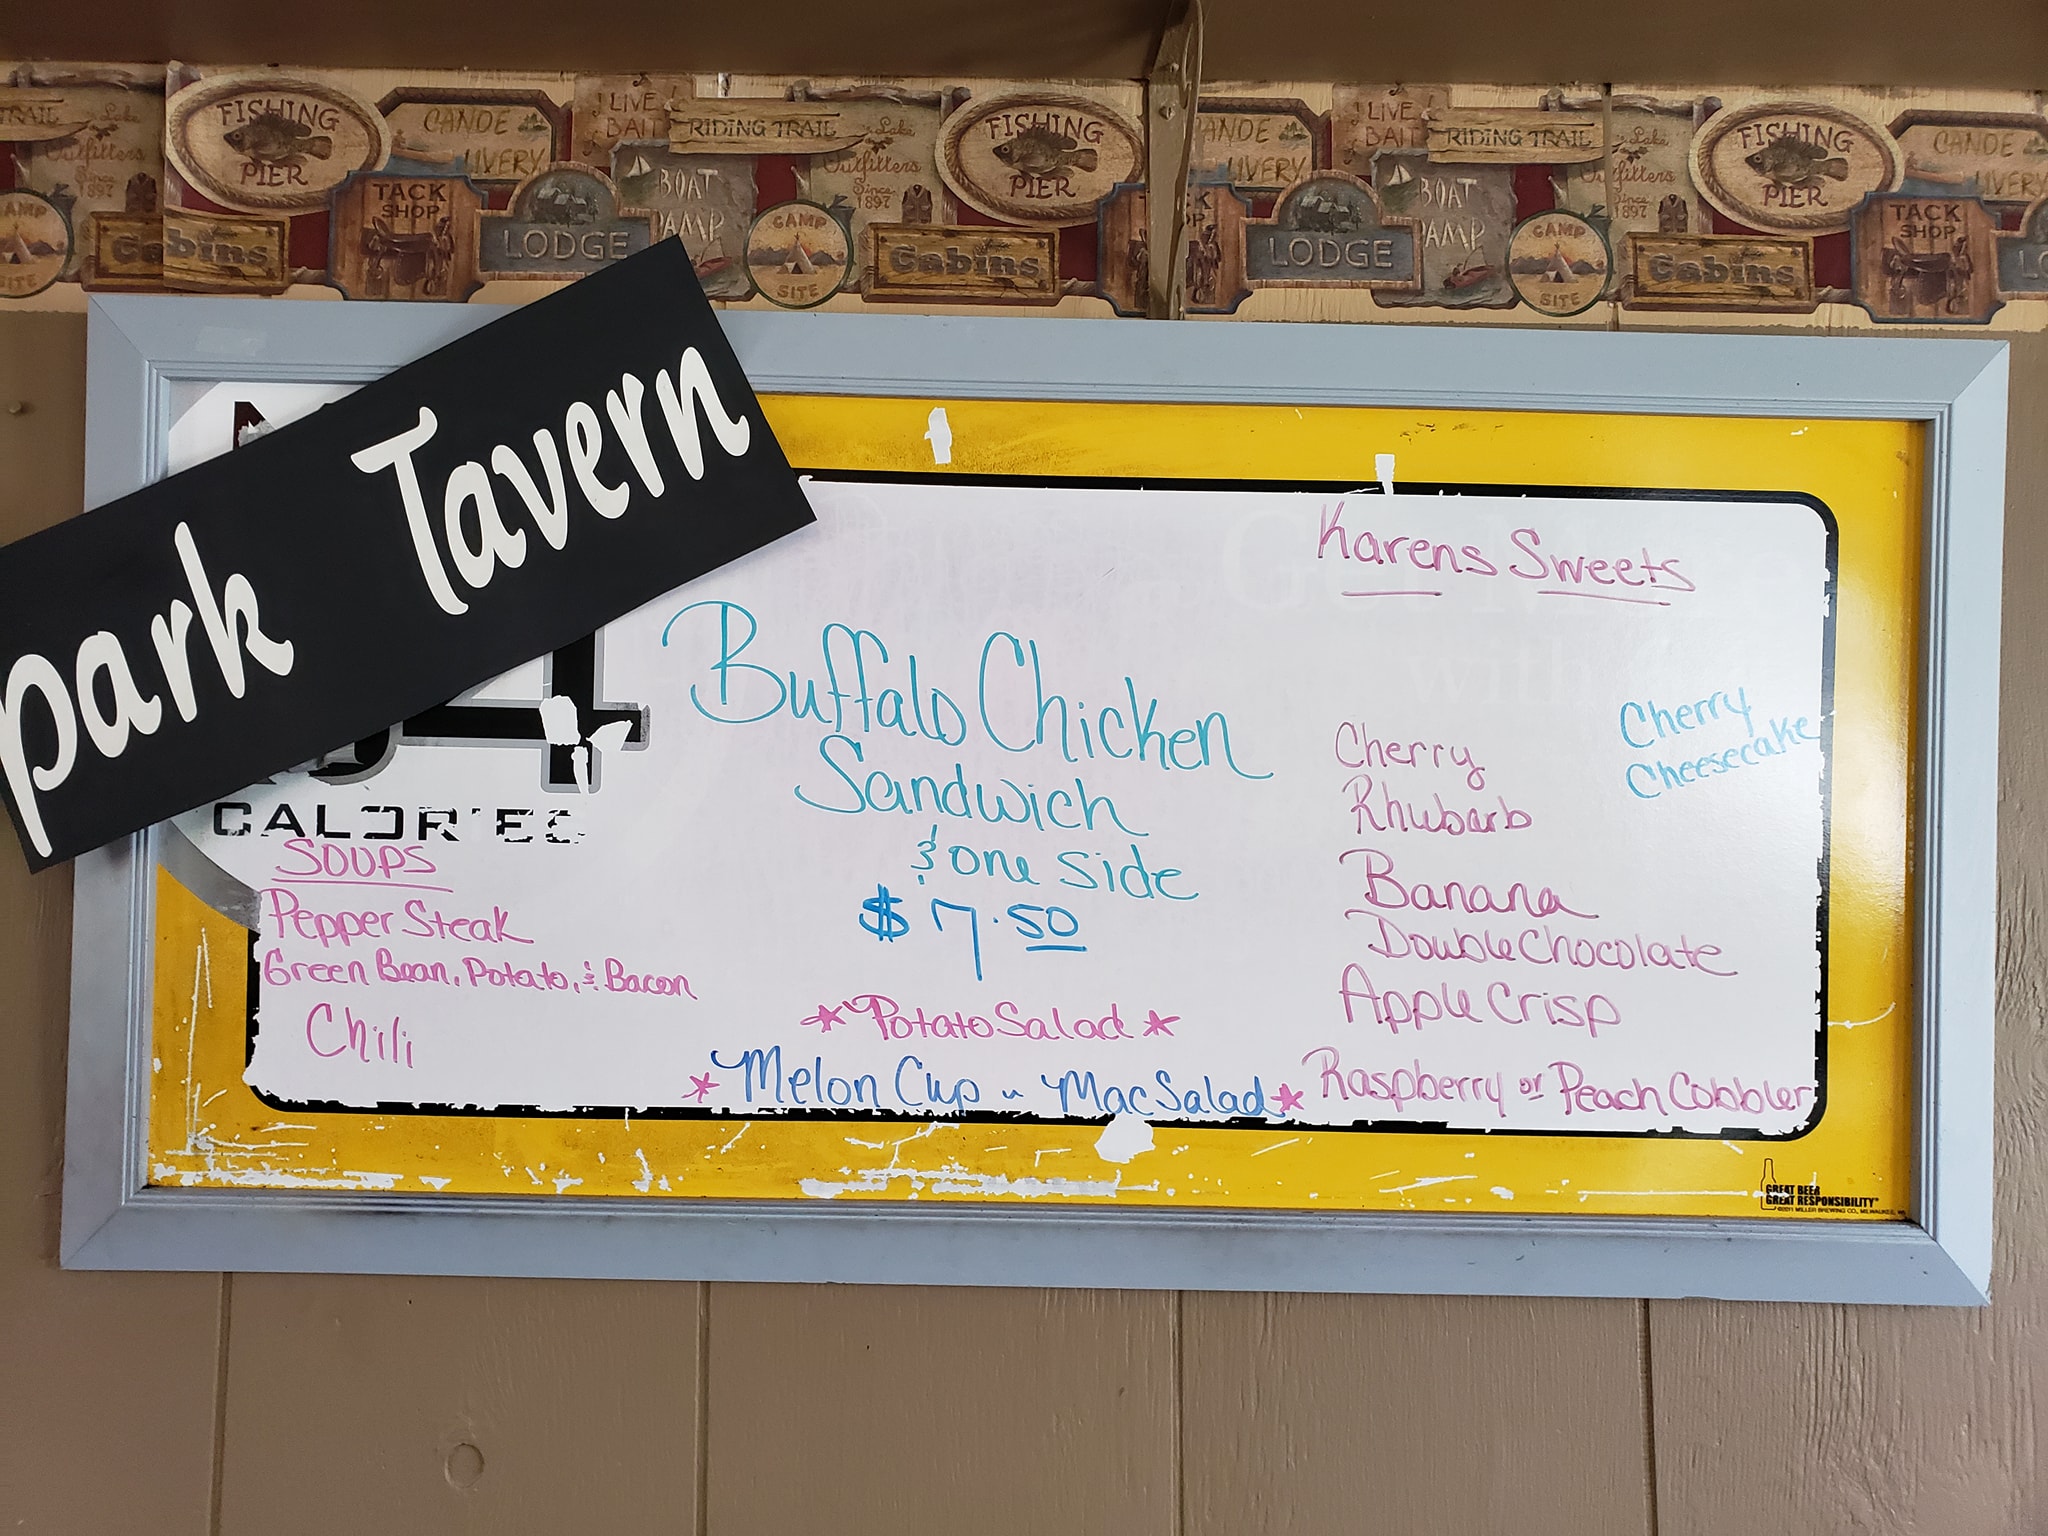 TRAIL
Lake
Outfitters
Since
1897
CAMP
SITE
Cabins
FISHING
PIER
CANOE
LIVERY
TACK
SHOP
LIVE
BAIT
RIDING TRAIL
LODGE
BOAT
RAMP
Lake
Outfitters
Since
1897
CAMP
SITE
FISHING
PIER
Cabins
CANOE
LIVERY
LIVE
BAIT
RIDING TRAIL
LODGE
BOAT
RAMP
Lake
Outfitters
Since
1897
CAMP
SITE
FISHING
PIER
Cabins
CANOE
LIVERY
TACK
SHOP
park Tavern
64
CALORIES
SOUPS
Pepper Steak
Green Bean, Potato, & Bacon
Chili
Buffalo Chicken
Sandwich
& one side
$ 7.50
*Potato Salad*
*Melon Cup ~ Mac Salad*
Karens Sweets
Cherry
Rhubarb
Banana
Double Chocolate
Apple Crisp
Raspberry or Peach Cobbler
Cherry
Cheesecake
GREAT BEER
GREAT RESPONSIBILITY®
©2011 MILLER BREWING CO., MILWAUKEE, WI